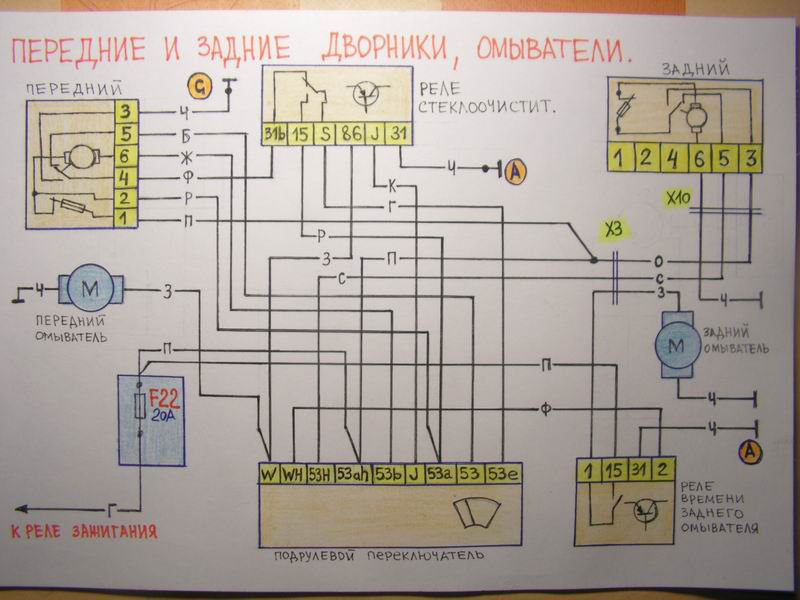 ПЕРЕДНИЕ И ЗАДНИЕ ДВОРНИКИ, ОМЫВАТЕЛИ.
ПЕРЕДНИЙ
G
РЕЛЕ
СТЕКЛООЧИСТИТ.
ЗАДНИЙ
3 Ч
5 Б
6 Ж
4 Ф
2 Р
1 П
31b 15 S 86 J 31
Ч A
К
Г
Р
З П
С
1 2 4 6 5 3
X10
X3
О
С
З
Ч
Ч М З
ПЕРЕДНИЙ
ОМЫВАТЕЛЬ
М
ЗАДНИЙ
ОМЫВАТЕЛЬ
Ч
П
П
F22
20А
Ф
Ч
A
Г
К РЕЛЕ ЗАЖИГАНИЯ
W WH 53H 53ah 53b J 53a 53 53e
ПОДРУЛЕВОЙ ПЕРЕКЛЮЧАТЕЛЬ
1 15 31 2
РЕЛЕ
ВРЕМЕНИ
ЗАДНЕГО
ОМЫВАТЕЛЯ